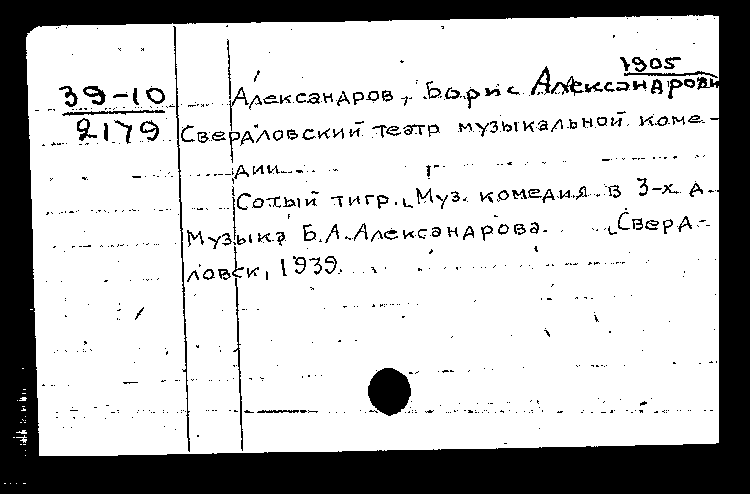 1905
39-10 Александров, Борис Александрови
2179 Свердловский театр музыкальной коме-
дии.
Сотый тигр. Муз. комедия в 3-х д.
Музыка Б.А.Александрова. Сверд-
ловск, 1939.